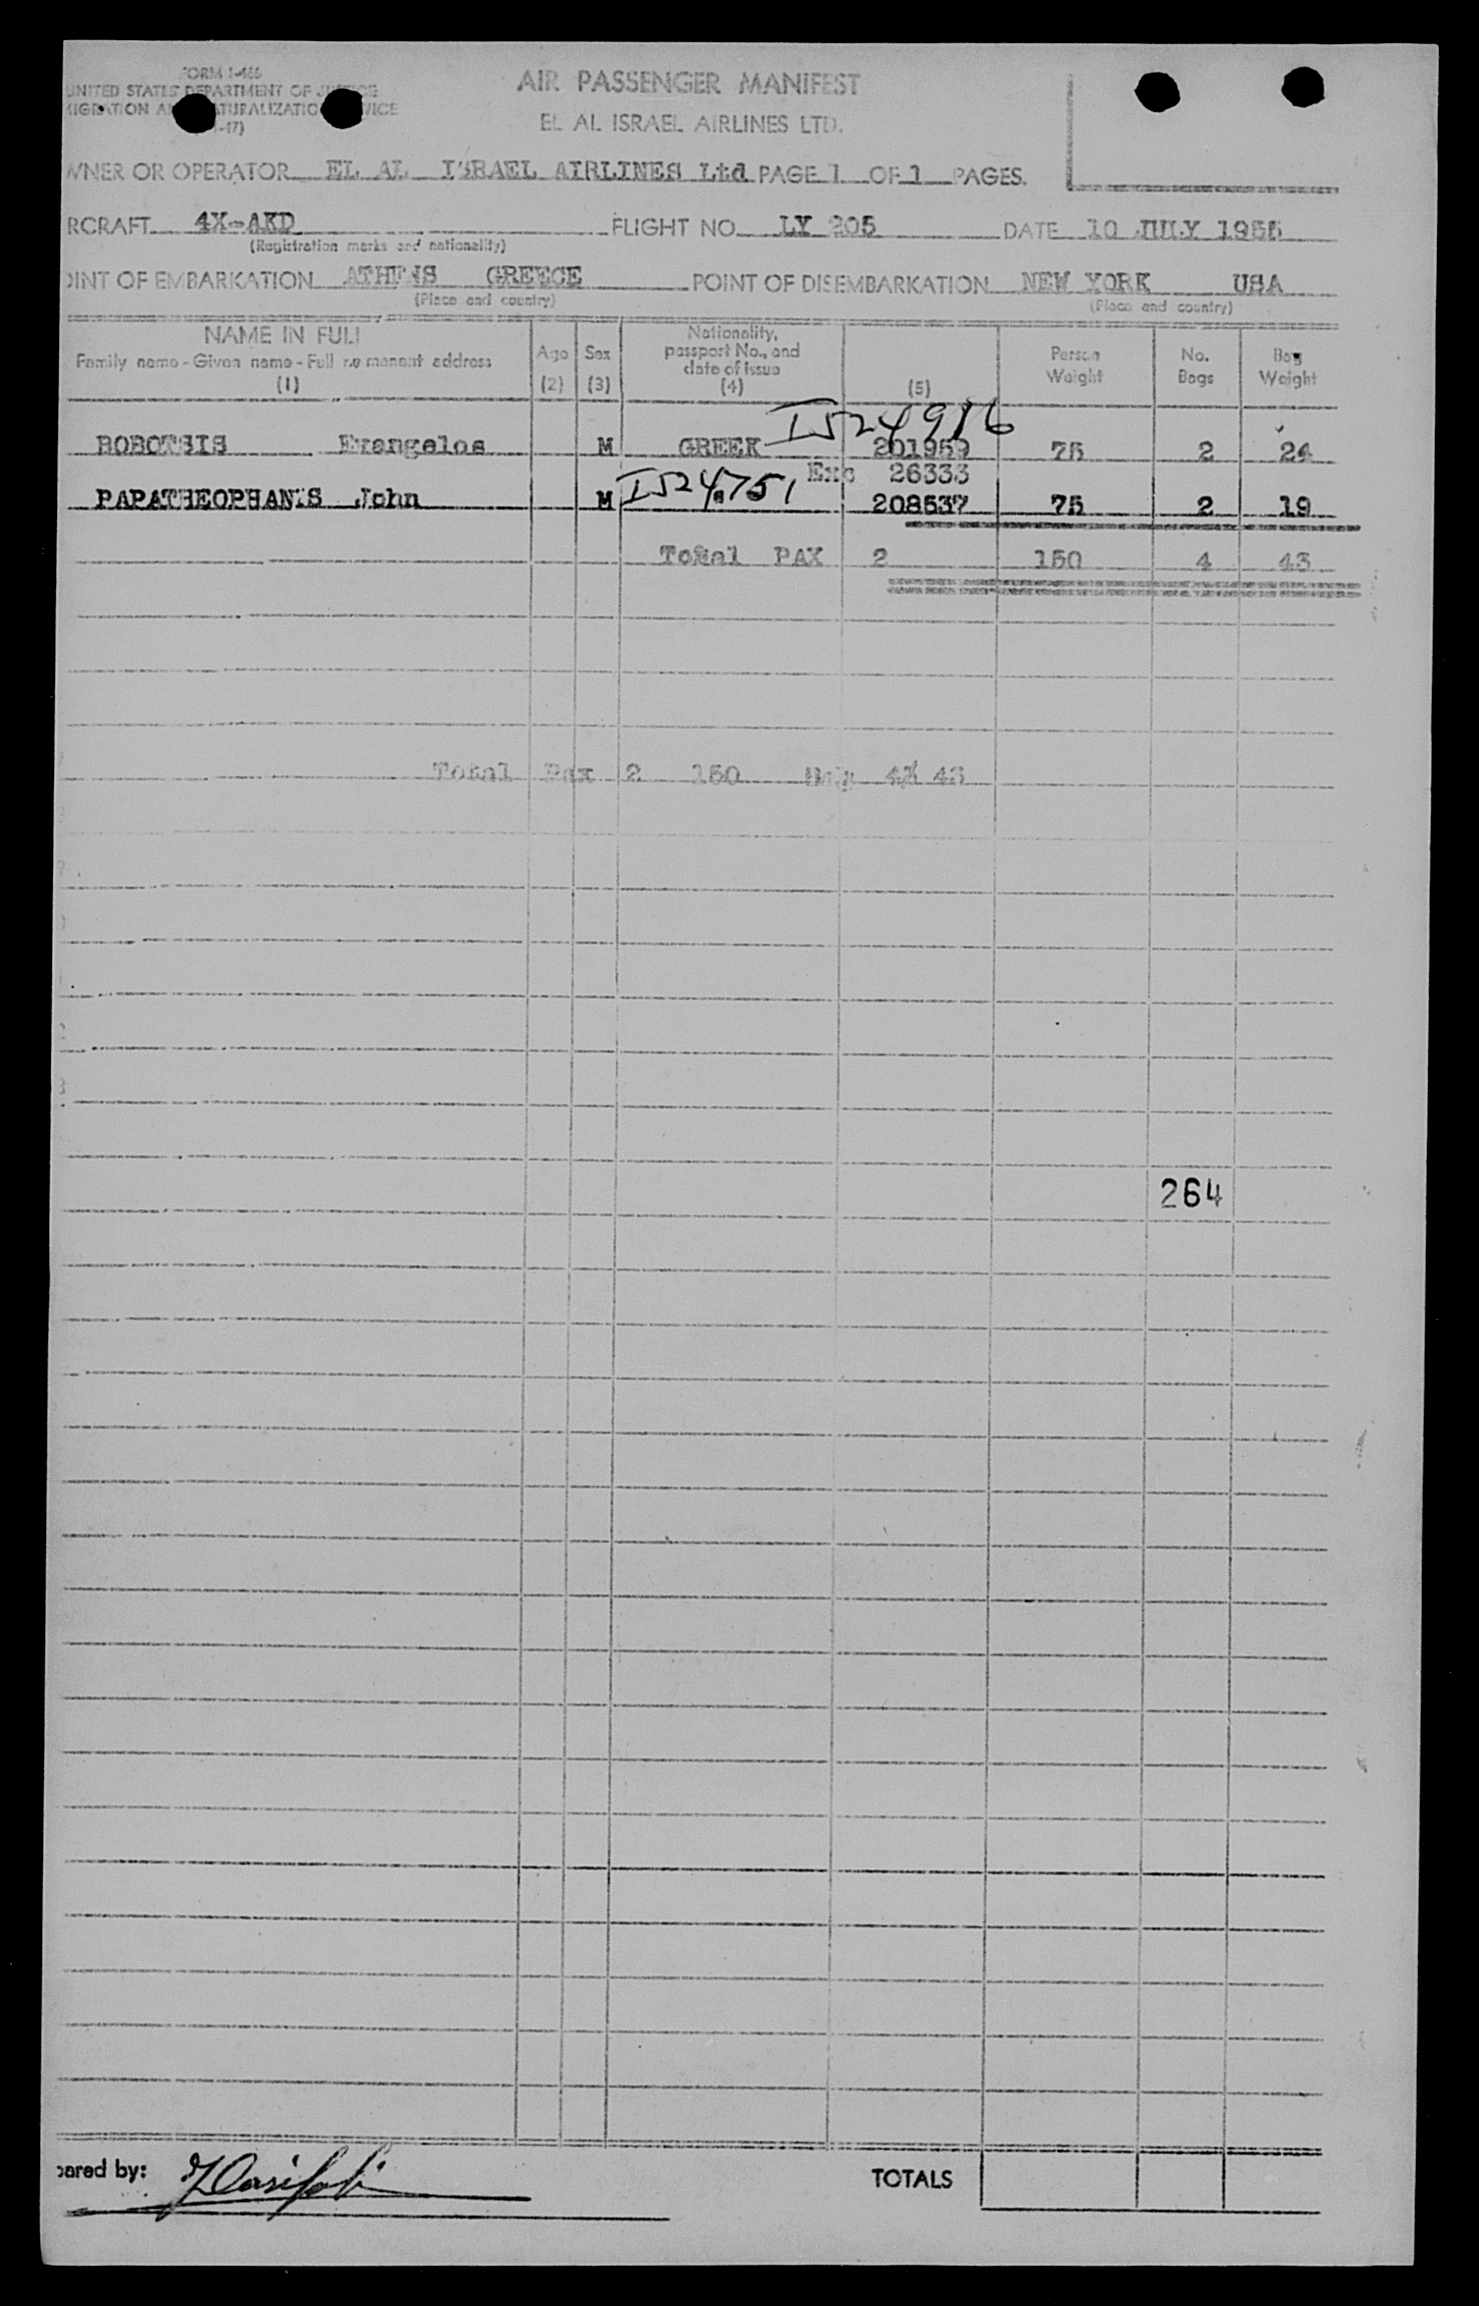 FORM I-466
UNITED STATES DEPARTMENT OF JUSTICE
AIR PASSENGER MANIFEST
EL AL ISRAEL AIRLINES LTD.
WNER OR OPERATOR EL AL ISRAEL AIRLINES Ltd PAGE 1 OF 1 PAGES.
RCRAFT 4X-AKD FLIGHT NO. LY 205 DATE 10 JULY 1955
(Registration marks and nationality)
OINT OF EMBARKATION ATHENS GREECE POINT OF DISEMBARKATION NEW YORK USA
(Place and country) (Place and country)
NAME IN FULL
Family name - Given name - Full permanent address
(1)
Age
(2)
Sex
(3)
Nationality,
passport No., and
date of issue
(4)
(5)
Person
Weight
No.
Bags
Bag
Weight
I524916
BOBOTSIS Evangelos M GREEK 201959 75 2 24
Exc 26333
PAPATHEOPHANIS John M I524751 208537 75 2 19
Total PAX 2 150 4 43
Total Pax 2 150 43
264
pared by:
TOTALS